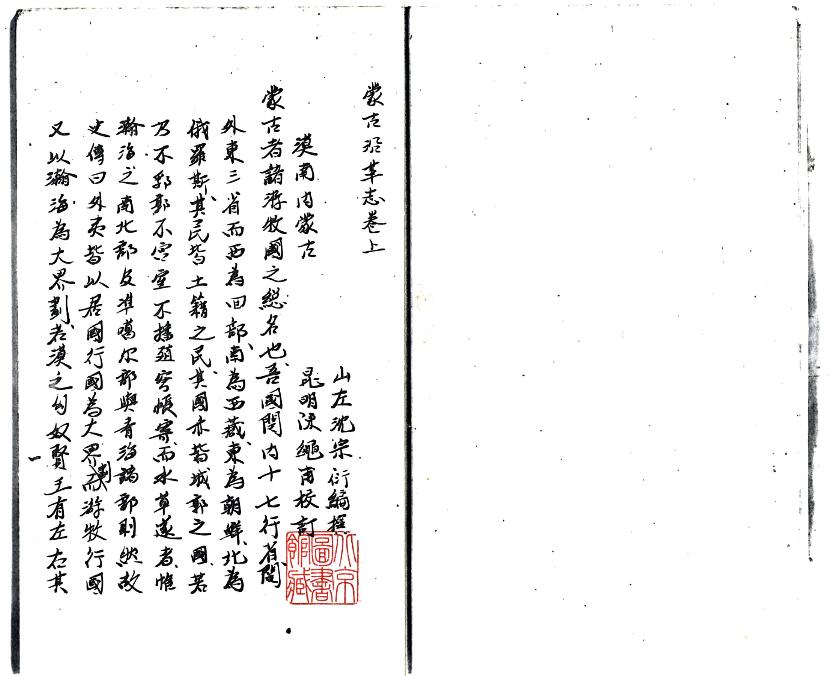 蒙古沿革志卷上
山左沈宗衍編撰
漠南内蒙古
昆明陳繩甫校訂
蒙古者諸游牧國之総名也吾國関内十七行省関
外東三省而西為回部南為西藏東為朝鮮北為
俄羅斯其民皆土籍之民其國亦皆城郭之國若
乃不郛郭不宫室不播殖穹帳寄而水草逐者惟
瀚海之南北部及準噶尔部與青海諸部則然故
史傳曰外夷皆以居國行國為大界劃而游牧行國
又以瀚海為大界劃若漠之匈奴賢王有左右其
一
北京圖書館藏